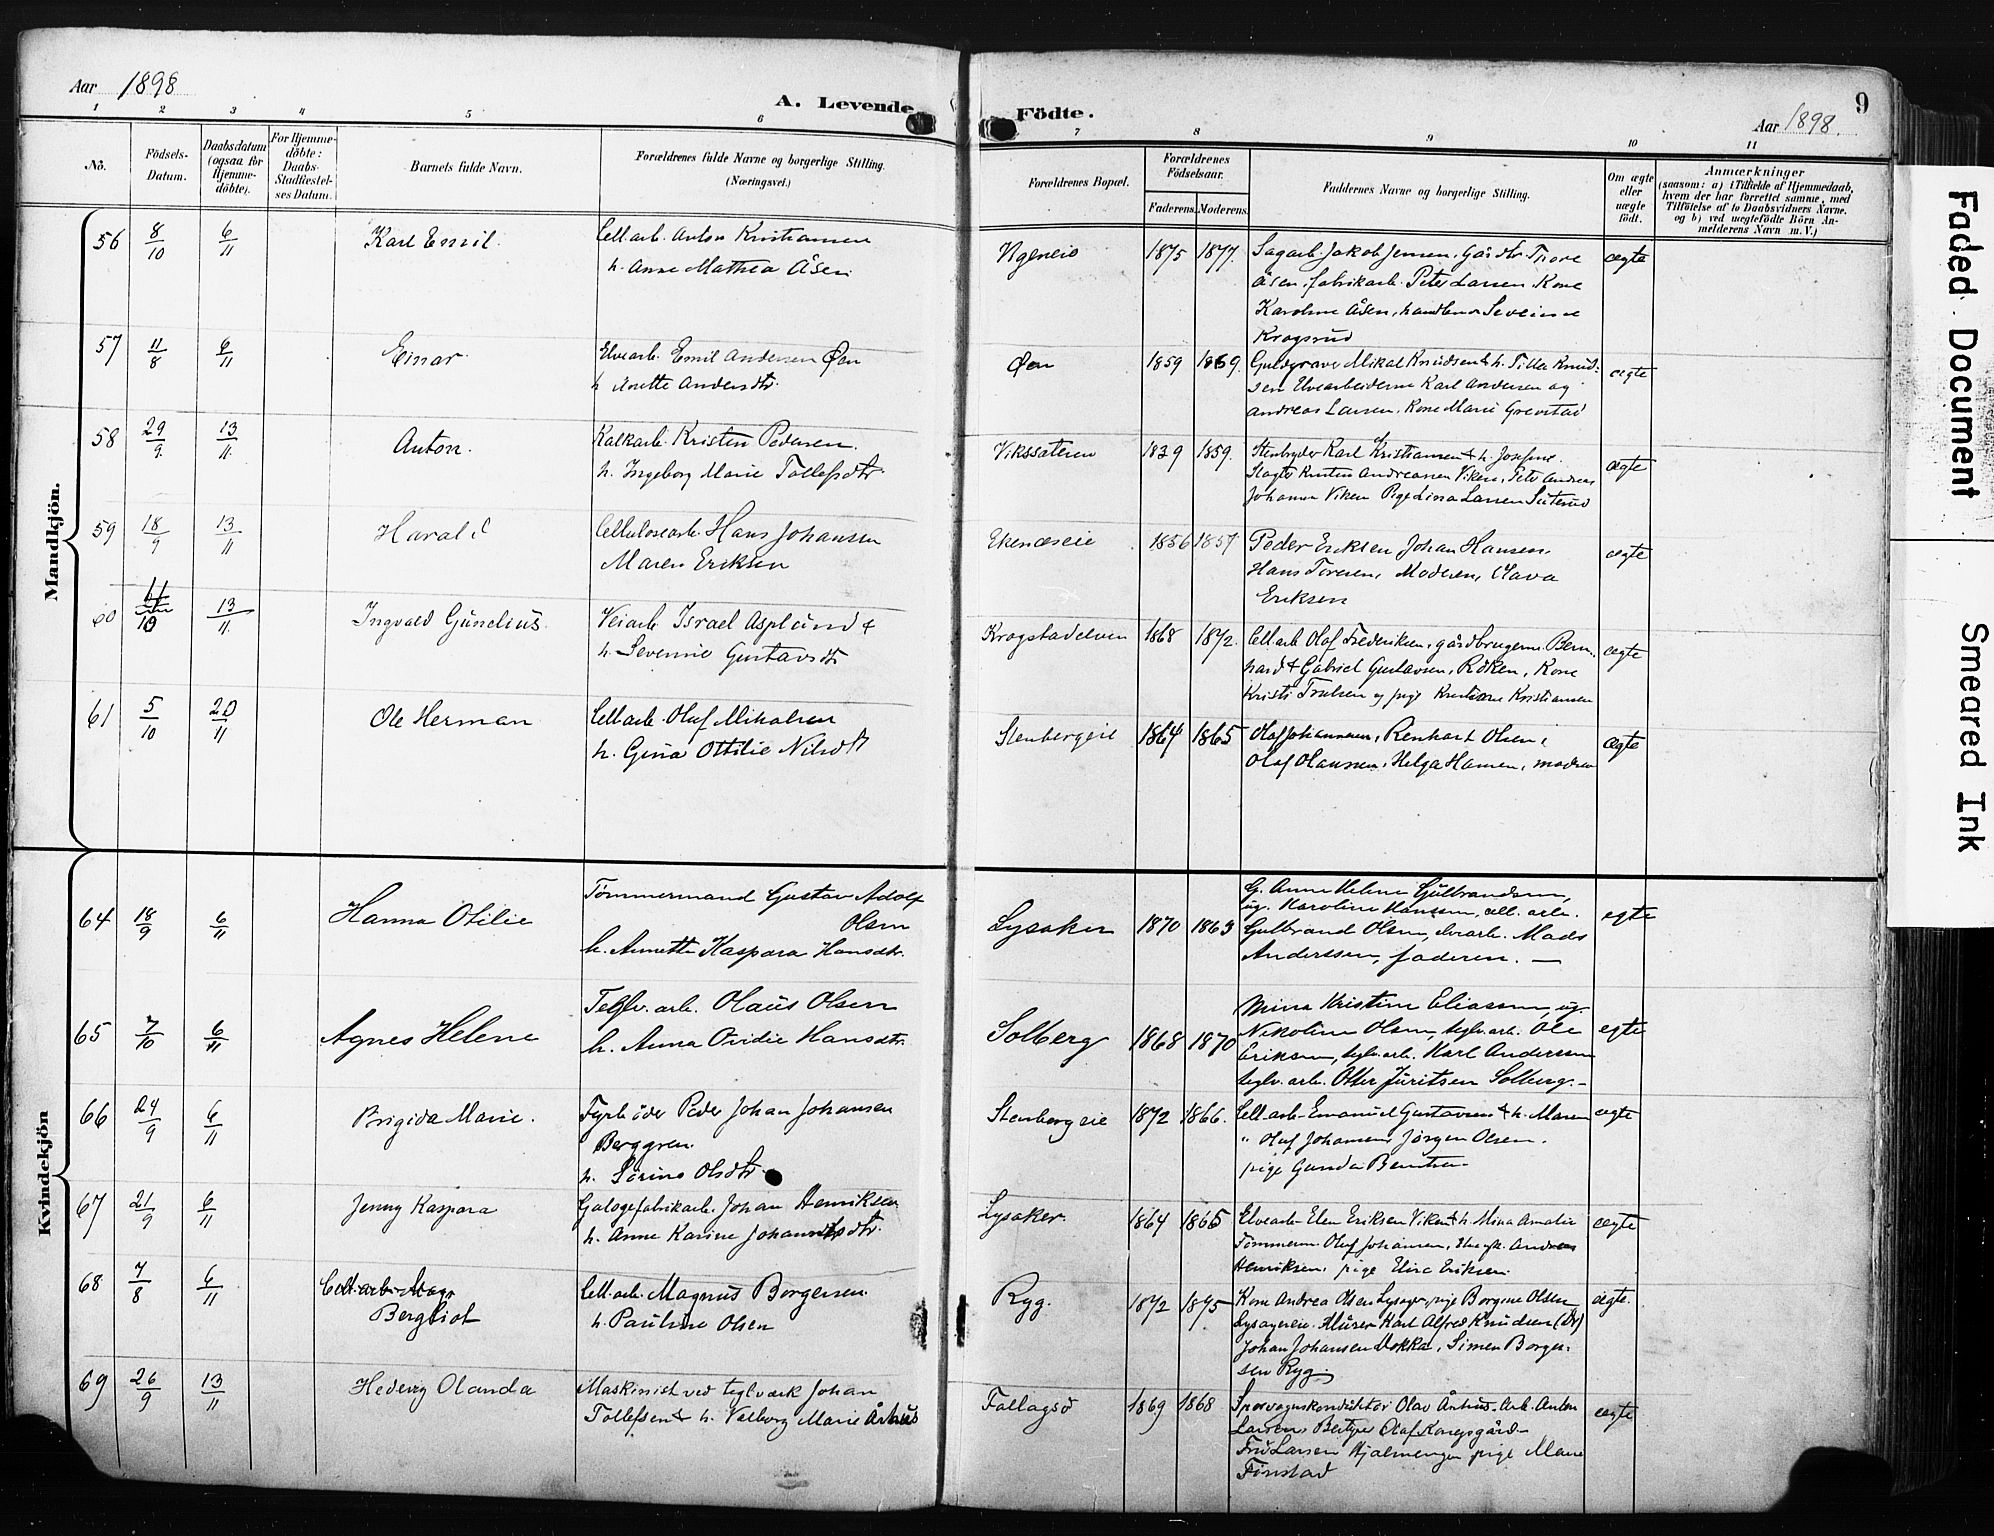 Aar 1898
A. Levende
Födte.
Aar 1898.
9
1 2 3 4 5 6 7 8 9 10 11
No.
Födsels-Datum.
Daabsdatum (ogsaa for Hjemme-döbte).
For Hjemme-döbte: Daabs-Stadfæstel-ses Datum.
Barnets fulde Navn.
Forældrenes fulde Navne og borgerlige Stilling. (Næringsvei.)
Forældrenes Bopæl.
Forældrenes Födselsaar.
Faderens. Moderens.
Faddernes Navne og borgerlige Stilling.
Om ægte eller uægte födt.
Anmærkninger
(saasom: a) i Tilfælde af Hjemmedaab, hvem der har forrettet samme, med Tilföielse af to Daabsvidners Navne. og b) ved uægtefödte Börn An-melderens Navn m. V.)
Mandkjön.
56 8/10 6/11 Karl Emil.
Cell.arb. Anton Kristiansen
h. Anne Mathea Åsen
1875 1877.
Sagarb. Jakob Jensen, Gårdbr. Thore
Åsen, fabrikarb. Peter Larsen, Kone
Karoline Åsen, handlende Severine
Krogsrud
ægte
57 11/8 6/11 Einar.
Elvearb. Emil Andersen Øen
h. Anette Andersdtr.
Øen
1859 1869.
Mikal Knudsen & h. Tilla Knud-
sen Elvearbeiderne Karl Andersen og
Andreas Larsen. Kone Marie Grevstad
ægte
58 29/9 13/11 Anton.
Kalkarb. Kristen Pedersen
h. Ingeborg Marie Tollefsdtr
Vikssæteren
1839 1859.
Stenbryder Karl Kristiansen & h. Josefine.
Andreasen Viken, Peter Andreas
Johansen Viken Pige Lina Larsen
ægte
59 18/9 13/11 Harald
Cellulosearb. Hans Johansen
Maren Eriksen
Ekenæseie
1856 1857
Peder Eriksen Johan Hansen,
Hans Toresen, Moderen, Olava
Eriksen
ægte
60 11/10 13/11 Ingvald Gunelius.
Veiarb. Israel Asplund &
h. Severine Gustavsdtr
Krogstadelven
1868 1872.
Cell.arb Olof Frederiksen, gårdbrugerne Bern-
hard & Gabriel Gustavsen, Röken, Kone
Kristi Trulsen og pige Kristiane Kristiansen
ægte
61 5/10 20/11 Ole Herman
Cell.arb. Oluf Mikalsen
h. Gina Ottilie Nilsdtr
Stenbergeie
1864 1865
Olaf Johannesen, Renhart Olsen,
Olaf Olaussen, Helga Hansen, modren
ægte
Kvindekjön
64 18/9 6/11 Hanna Otilie
Tømmermand Gustav Adolf
Olsen
h. Annette Kaspara Hansdtr.
Lysaker
1870 1863
G. Anne Helene Gulbrandsen,
ug. Karoline Hanssen, cell. arb.
Gulbrand Olsen, elvearb. Mads
Anderssen, faderen. —
egte
65 7/10 6/11 Agnes Helene
Teglv. arb. Olaus Olsen
h. Anna Ovidie Hansdtr.
Solberg
1868 1870
Mina Kristine Eliassen, ug.
Nikoline Olsen, teglv.arb. Ole
Eriksen, teglv.arb. Karl Anderssen
teglv. arb. Otter Juritsen Solberg. -
egte
66 24/9 6/11 Brigida Marie.
Fyrbøder Peder Johan Johansen
Berggren.
h. Sørine Olsdtr.
Stenbergeie
1872 1866.
Cell.arb. Emanuel Gustavsen & h. Maren
" Oluf Johansen, Jørgen Olsen.
pige Gunda Berntsen
ægte
67 21/9 6/11 Jenny Kaspara
Galogefabrikarb. Johan Henriksen
h. Anne Karine Johannesdtr.
Lysaker.
1864 1865
Elvearb. Eriksen Viken & h. Mina Amalie
Tømmerm. Oluf Johansen, Andreas
Henriksen, pige Elise Eriksen
ægte
68 7/8 6/11 Cell.arb. Mag.
Bergliot
Cell.arb. Magnus Borgersen.
h. Pauline Olsen
Ryg.
1872 1875
Kone Andrea Olsen Lysager, pige Borgine Olsen
Lysagereie. Murer Karl Alfred Knudsen
Johan Johansen Dokka, Simen Borger-
sen Ryg.
ægte.
69 26/9 13/11 Hedevig Olanda
Maskinist ved teglværk Johan
Tollefsen & h. Valborg Marie Århus
Follagsd
1869 1868
Sporvognskonduktør Olav Århus. Arb. Anton
Larsen, Olaf Kongsgård
Fru Larsen Hjalmengen pige Marie
Finstad
ægte
Faded Document
Smeared Ink